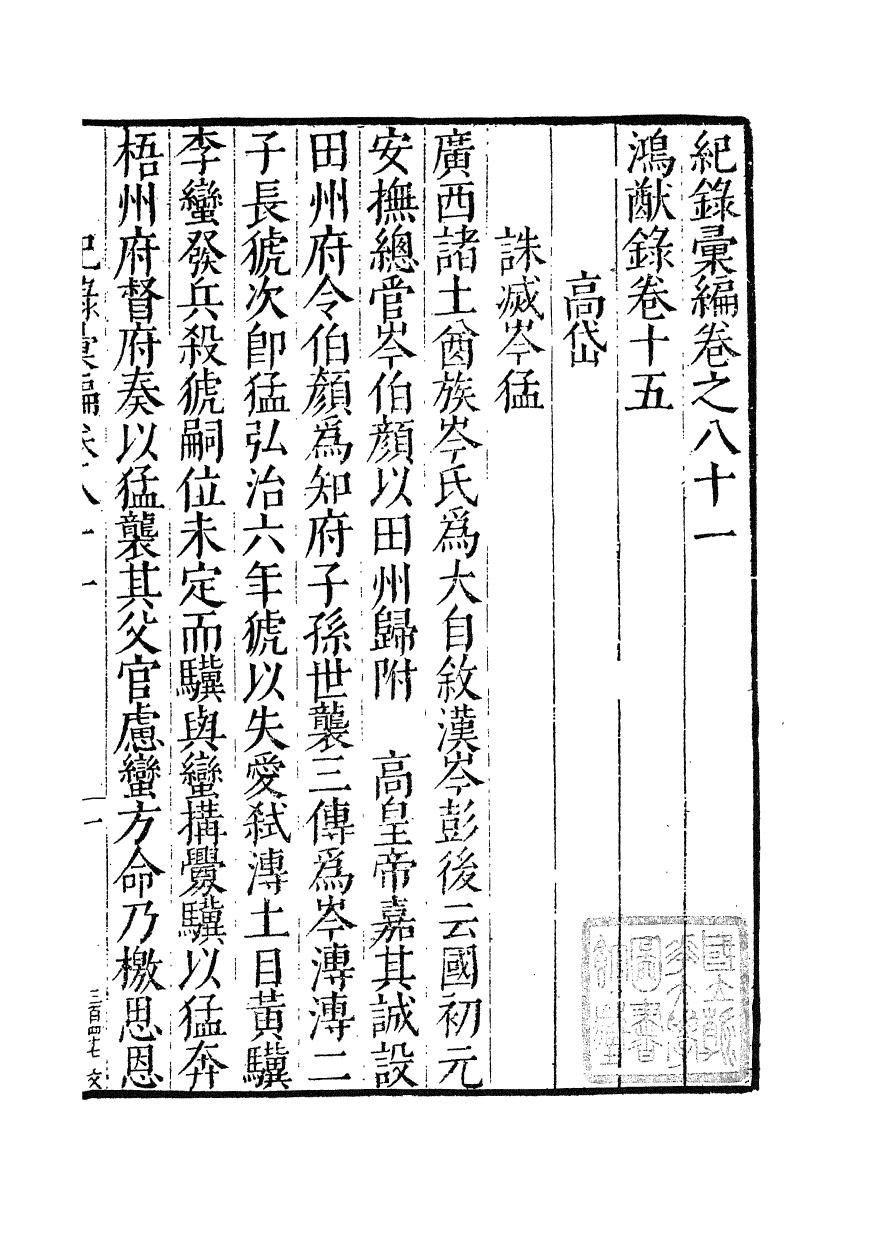 紀錄彙編卷之八十一
鴻猷錄卷十五
高岱
誅滅岑猛
廣西諸土酋族岑氏爲大自敘漢岑彭後云國初元
安撫總管岑伯顏以田州歸附　高皇帝嘉其誠設
田州府令伯顏爲知府子孫世襲三傳爲岑溥溥二
子長猇次卽猛弘治六年猇以失愛弑溥土目黃驥
李蠻發兵殺猇嗣位未定而驥與蠻搆釁驥以猛奔
梧州府督府奏以猛襲其父官慮蠻方命乃檄思恩
紀錄彙編卷八十一
一
三百四十七
文